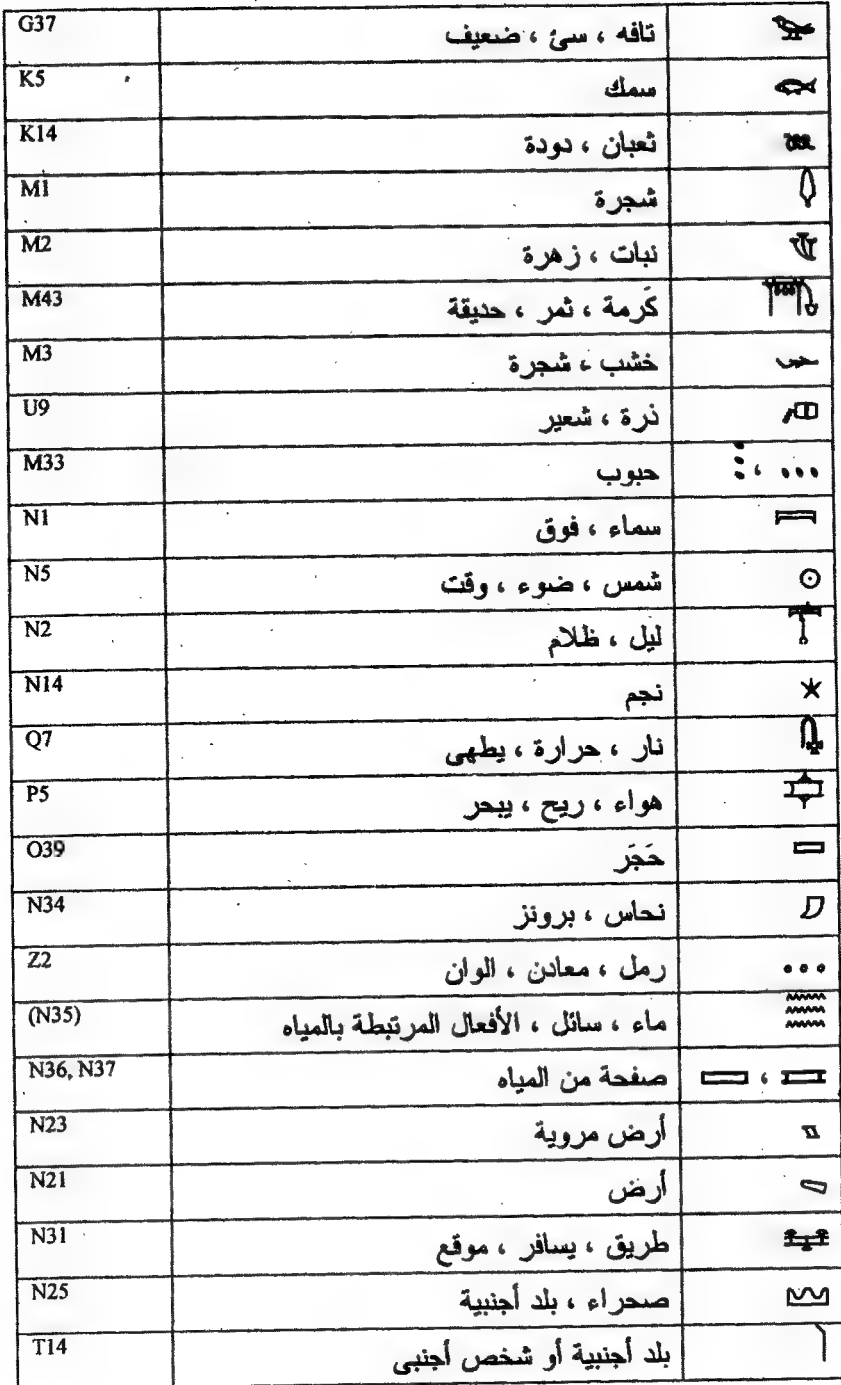 تافه ، سئ ، ضعيف G37
سمك K5
ثعبان ، دودة K14
شجرة M1
نبات ، زهرة M2
كَرمة ، ثمر ، حديقة M43
خشب ، شجرة M3
ذرة ، شعير U9
، حبوب M33
سماء ، فوق N1
شمس ، ضوء ، وقت N5
ليل ، ظلام N2
نجم N14
نار ، حرارة ، يطهى Q7
هواء ، ريح ، يبحر P5
حَجَر O39
نحاس ، برونز N34
رمل ، معادن ، الوان Z2
ماء ، سائل ، الأفعال المرتبطة بالمياه (N35)
، صفحة من المياه N36, N37
أرض مروية N23
أرض N21
طريق ، يسافر ، موقع N31
صحراء ، بلد أجنبية N25
بلد أجنبية أو شخص أجنبى T14